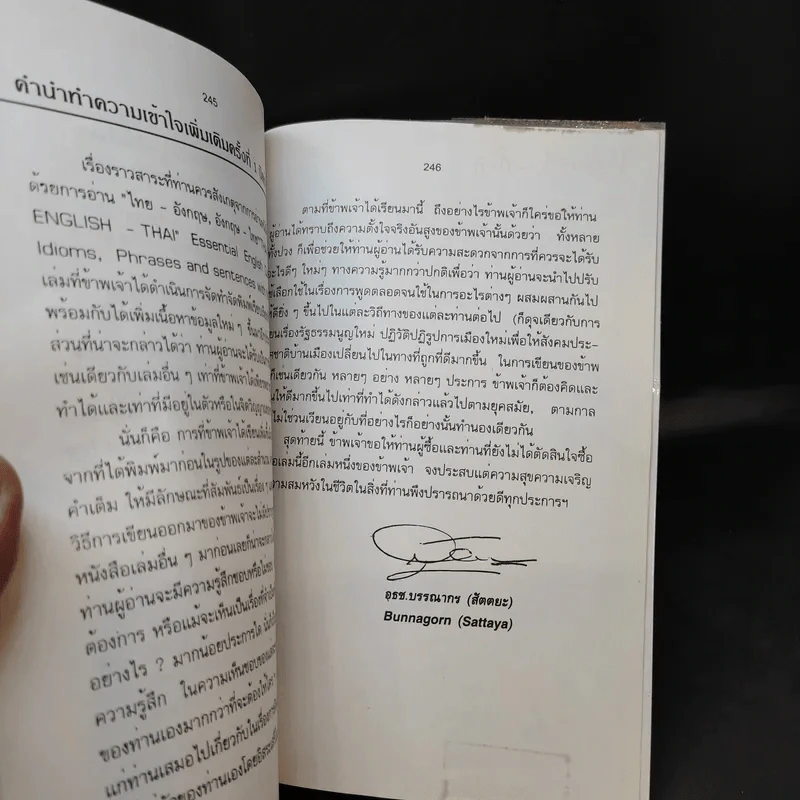 245
คำนำทำความเข้าใจเพิ่มเติมครั้งที่ 1
เรื่องราวสาระที่ท่านควรสังเกตุจากการ
ด้วยการอ่าน "ไทย - อังกฤษ, อังกฤษ - ไทย"
ENGLISH - THAI" Essential English
Idioms, Phrases and sentences
เล่มที่ข้าพเจ้าได้ดำเนินการจัดทำจัดพิมพ์
พร้อมกับได้เพิ่มเนื้อหาข้อมูลใหม่ ๆ ขึ้น
ส่วนที่น่าจะกล่าวได้ว่า ท่านผู้อ่านจะได้รับ
เช่นเดียวกับเล่มอื่น ๆ เท่าที่ข้าพเจ้า
ทำได้และเท่าที่มีอยู่ในตัวหรือในจิต
นั่นก็คือ การที่ข้าพเจ้าได้เขียน
จากที่ได้พิมพ์มาก่อนในรูปของแต่ละ
คำเต็ม ให้มีลักษณะที่สัมพันธ์เป็นเรื่อง ๆ
วิธีการเขียนออกมาของข้าพเจ้าจะไม่
หนังสือเล่มอื่น ๆ มาก่อนเลยก็น่าจะ
ท่านผู้อ่านจะมีความรู้สึกชอบหรือไม่
ต้องการ หรือแม้จะเห็นเป็นเรื่องที่
อย่างไร ? มากน้อยประการใด
ความรู้สึก ในความเห็นชอบของ
ของท่านเองมากกว่าที่จะต้องให้ใคร
แก่ท่านเสมอไปเกี่ยวกับในเรื่อง
ของท่านเองโดยอิสระ
246
ตามที่ข้าพเจ้าได้เรียนมานี้ ถึงอย่างไรข้าพเจ้าก็ใคร่ขอให้ท่าน
ผู้อ่านได้ทราบถึงความตั้งใจจริงอันสูงของข้าพเจ้านั้นด้วยว่า ทั้งหลาย
ทั้งปวง ก็เพื่อช่วยให้ท่านผู้อ่านได้รับความสะดวกจากการที่ควรจะได้รับ
อะไรดีๆ ใหม่ๆ ทางความรู้มากกว่าปกติเพื่อว่า ท่านผู้อ่านจะนำไปปรับ
ใช้เลือกใช้ในเรื่องการพูดตลอดจนใช้ในการอะไรต่างๆ ผสมผสานกันไป
ให้ดียิ่ง ๆ ขึ้นไปในแต่ละวิถีทางของแต่ละท่านต่อไป (ก็ดุจเดียวกับการ
เขียนเรื่องรัฐธรรมนูญใหม่ ปฏิวัติปฏิรูปการเมืองใหม่เพื่อให้สังคมประ-
เทศชาติบ้านเมืองเปลี่ยนไปในทางที่ถูกที่ดีมากขึ้น ในการเขียนของข้าพ
ก็เช่นเดียวกัน หลายๆ อย่าง หลายๆ ประการ ข้าพเจ้าก็ต้องคิดและ
ให้ดีมากขึ้นไปเท่าที่ทำได้ดังกล่าวแล้วไปตามยุคสมัย, ตามกาล
ไม่ใช่วนเวียนอยู่กับที่อย่างไรก็อย่างนั้นทำนองเดียวกัน
สุดท้ายนี้ ข้าพเจ้าขอให้ท่านผู้ซื้อและท่านที่ยังไม่ได้ตัดสินใจซื้อ
เล่มนี้อีกเล่มหนึ่งของข้าพเจ้า จงประสบแต่ความสุขความเจริญ
ความสมหวังในชีวิตในสิ่งที่ท่านพึงปรารถนาด้วยดีทุกประการฯ
อุธช.บรรณากร (สัตตยะ)
Bunnagorn (Sattaya)